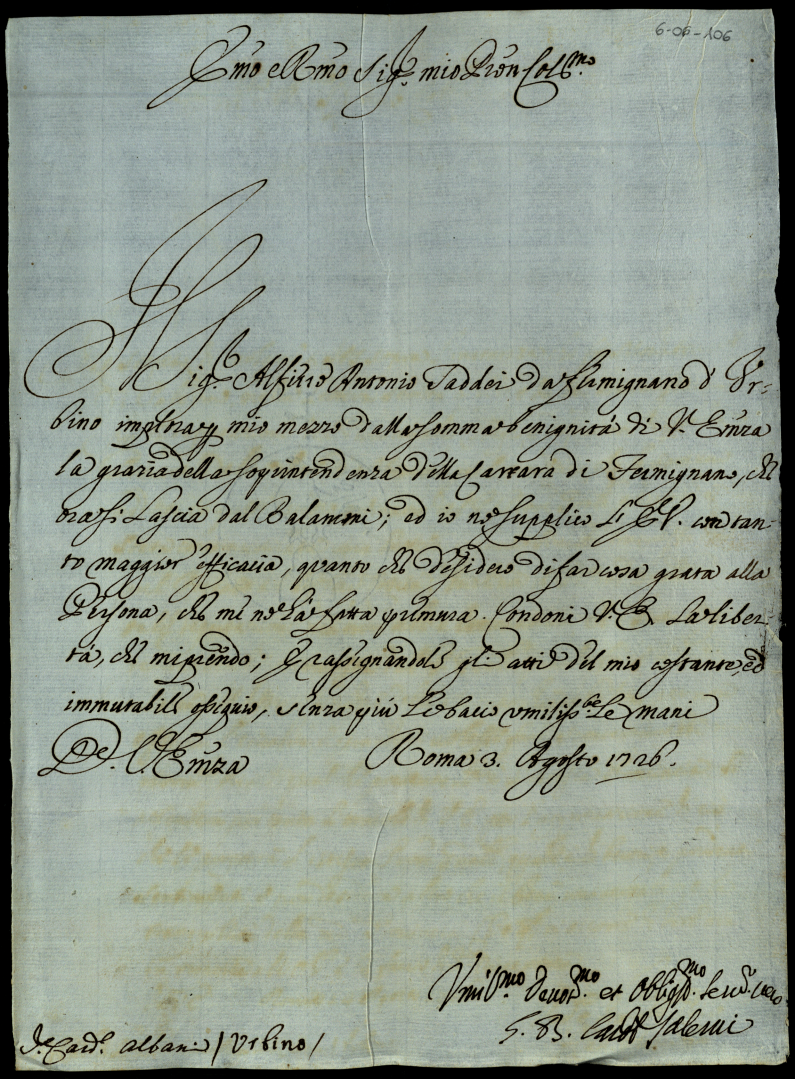 6-06-106
Emo e Rmo Sig.re mio Pron Col.mo
Il Sig.r Alfiere Antonio Taddei da Fermignano d'Ur-
bino impetra p mio mezzo dalla somma benignità di V. Emza
la grazia della soprintendenza della Cartara di Fermignano, che
ora si lascia dal Balamoni; ed io ne supplico l'E.V. con tan-
to maggior efficacia, quanto che desidero di far cosa grata alla
Persona, che me ne hà fatta premura. Condoni V. E. la liber-
tà, che mi prendo; E rassegnandole gli atti del mio costante, ed
immutabile ossequio, senza più le bacio umiliss.te le mani
De. V. Emza Roma 3. Agosto 1726.
Umil.mo Devot.mo et Obblig.mo Serv. vero
Card. Albani / Urbino /
G. B. Card. Salerni